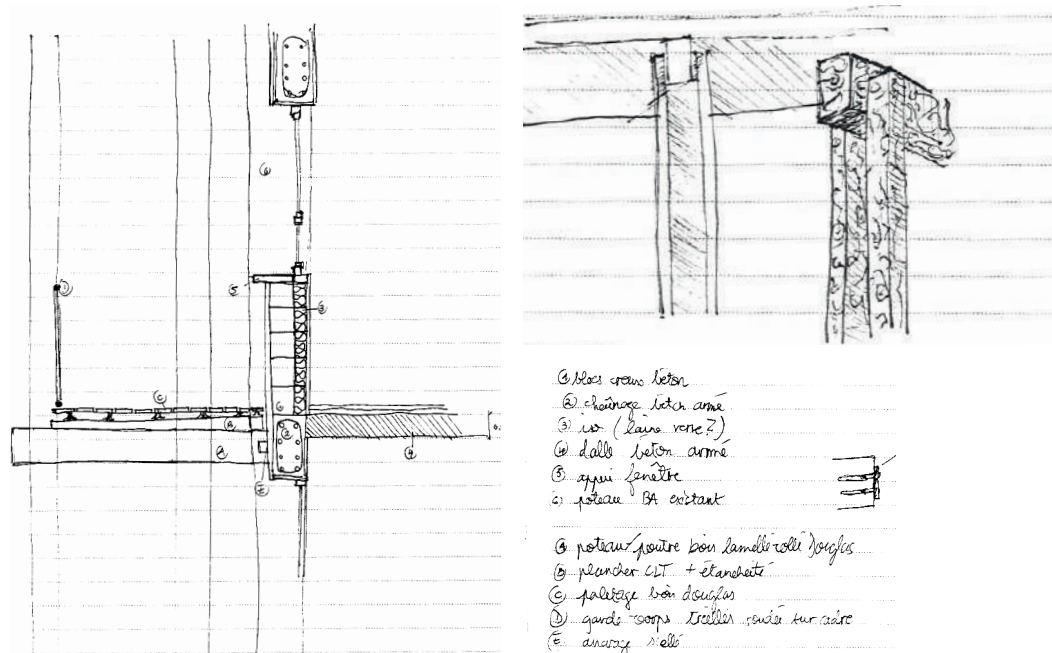 ① blocs creux béton
② chaînage béton armé
③ iso (laine verre?)
④ dalle béton armé
⑤ appui fenêtre
⑥ poteau BA existant
Ⓐ poteau/poutre bois lamellé collé Douglas
Ⓑ plancher CLT + étanchéité
Ⓒ platelage bois douglas
Ⓓ garde corps treillis soudé sur cadre
Ⓔ ancrage scellé